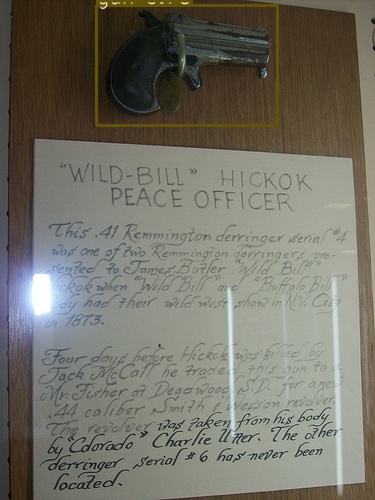 "WILD-BILL" HICKOK
PEACE OFFICER
This .41 Remmington derringer serial #4
was one of two Remmington derringers pre-
sented to James Butler "Wild Bill"
Hickok when "Wild Bill" and "Buffalo Bill"
Cody had their wild west show in N.Y. City
in 1873.
Four days before Hickok was killed by
Jack McCall he traded this gun to a
Mr. Fisher of Deadwood S.D. for a new
.44 caliber Smith & Wesson revolver.
The revolver was taken from his body
by "Colorado" Charlie Utter. The other
derringer serial #6 has never been
located.